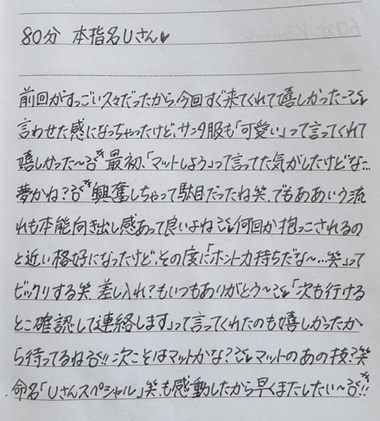 80分 本指名Uさん♥
前回がすっごい久々だったから、今回すぐ来てくれて嬉しかった〜
言わせた感になっちゃったけど、サンタ服も「可愛い」って言ってくれて
嬉しかった〜 最初、「マットしよう」って言ってた気がしたけどな…
夢かね? 興奮しちゃって駄目だったね笑 でもああいう流
れも本能向き出し感あって良いよね 何回か抱っこされるの
と近い格好になったけど、その度に「ホント力持ちだな〜…笑」って
ビックリする笑 差し入れもいつもありがとう〜「次も行ける
とこ確認して連絡します」って言ってくれたのも嬉しかったか
ら待ってるね!! 次こそはマットかな? マットのあの技?笑
命名「Uさんスペシャル」笑も感動したから早くまたしたい〜!!